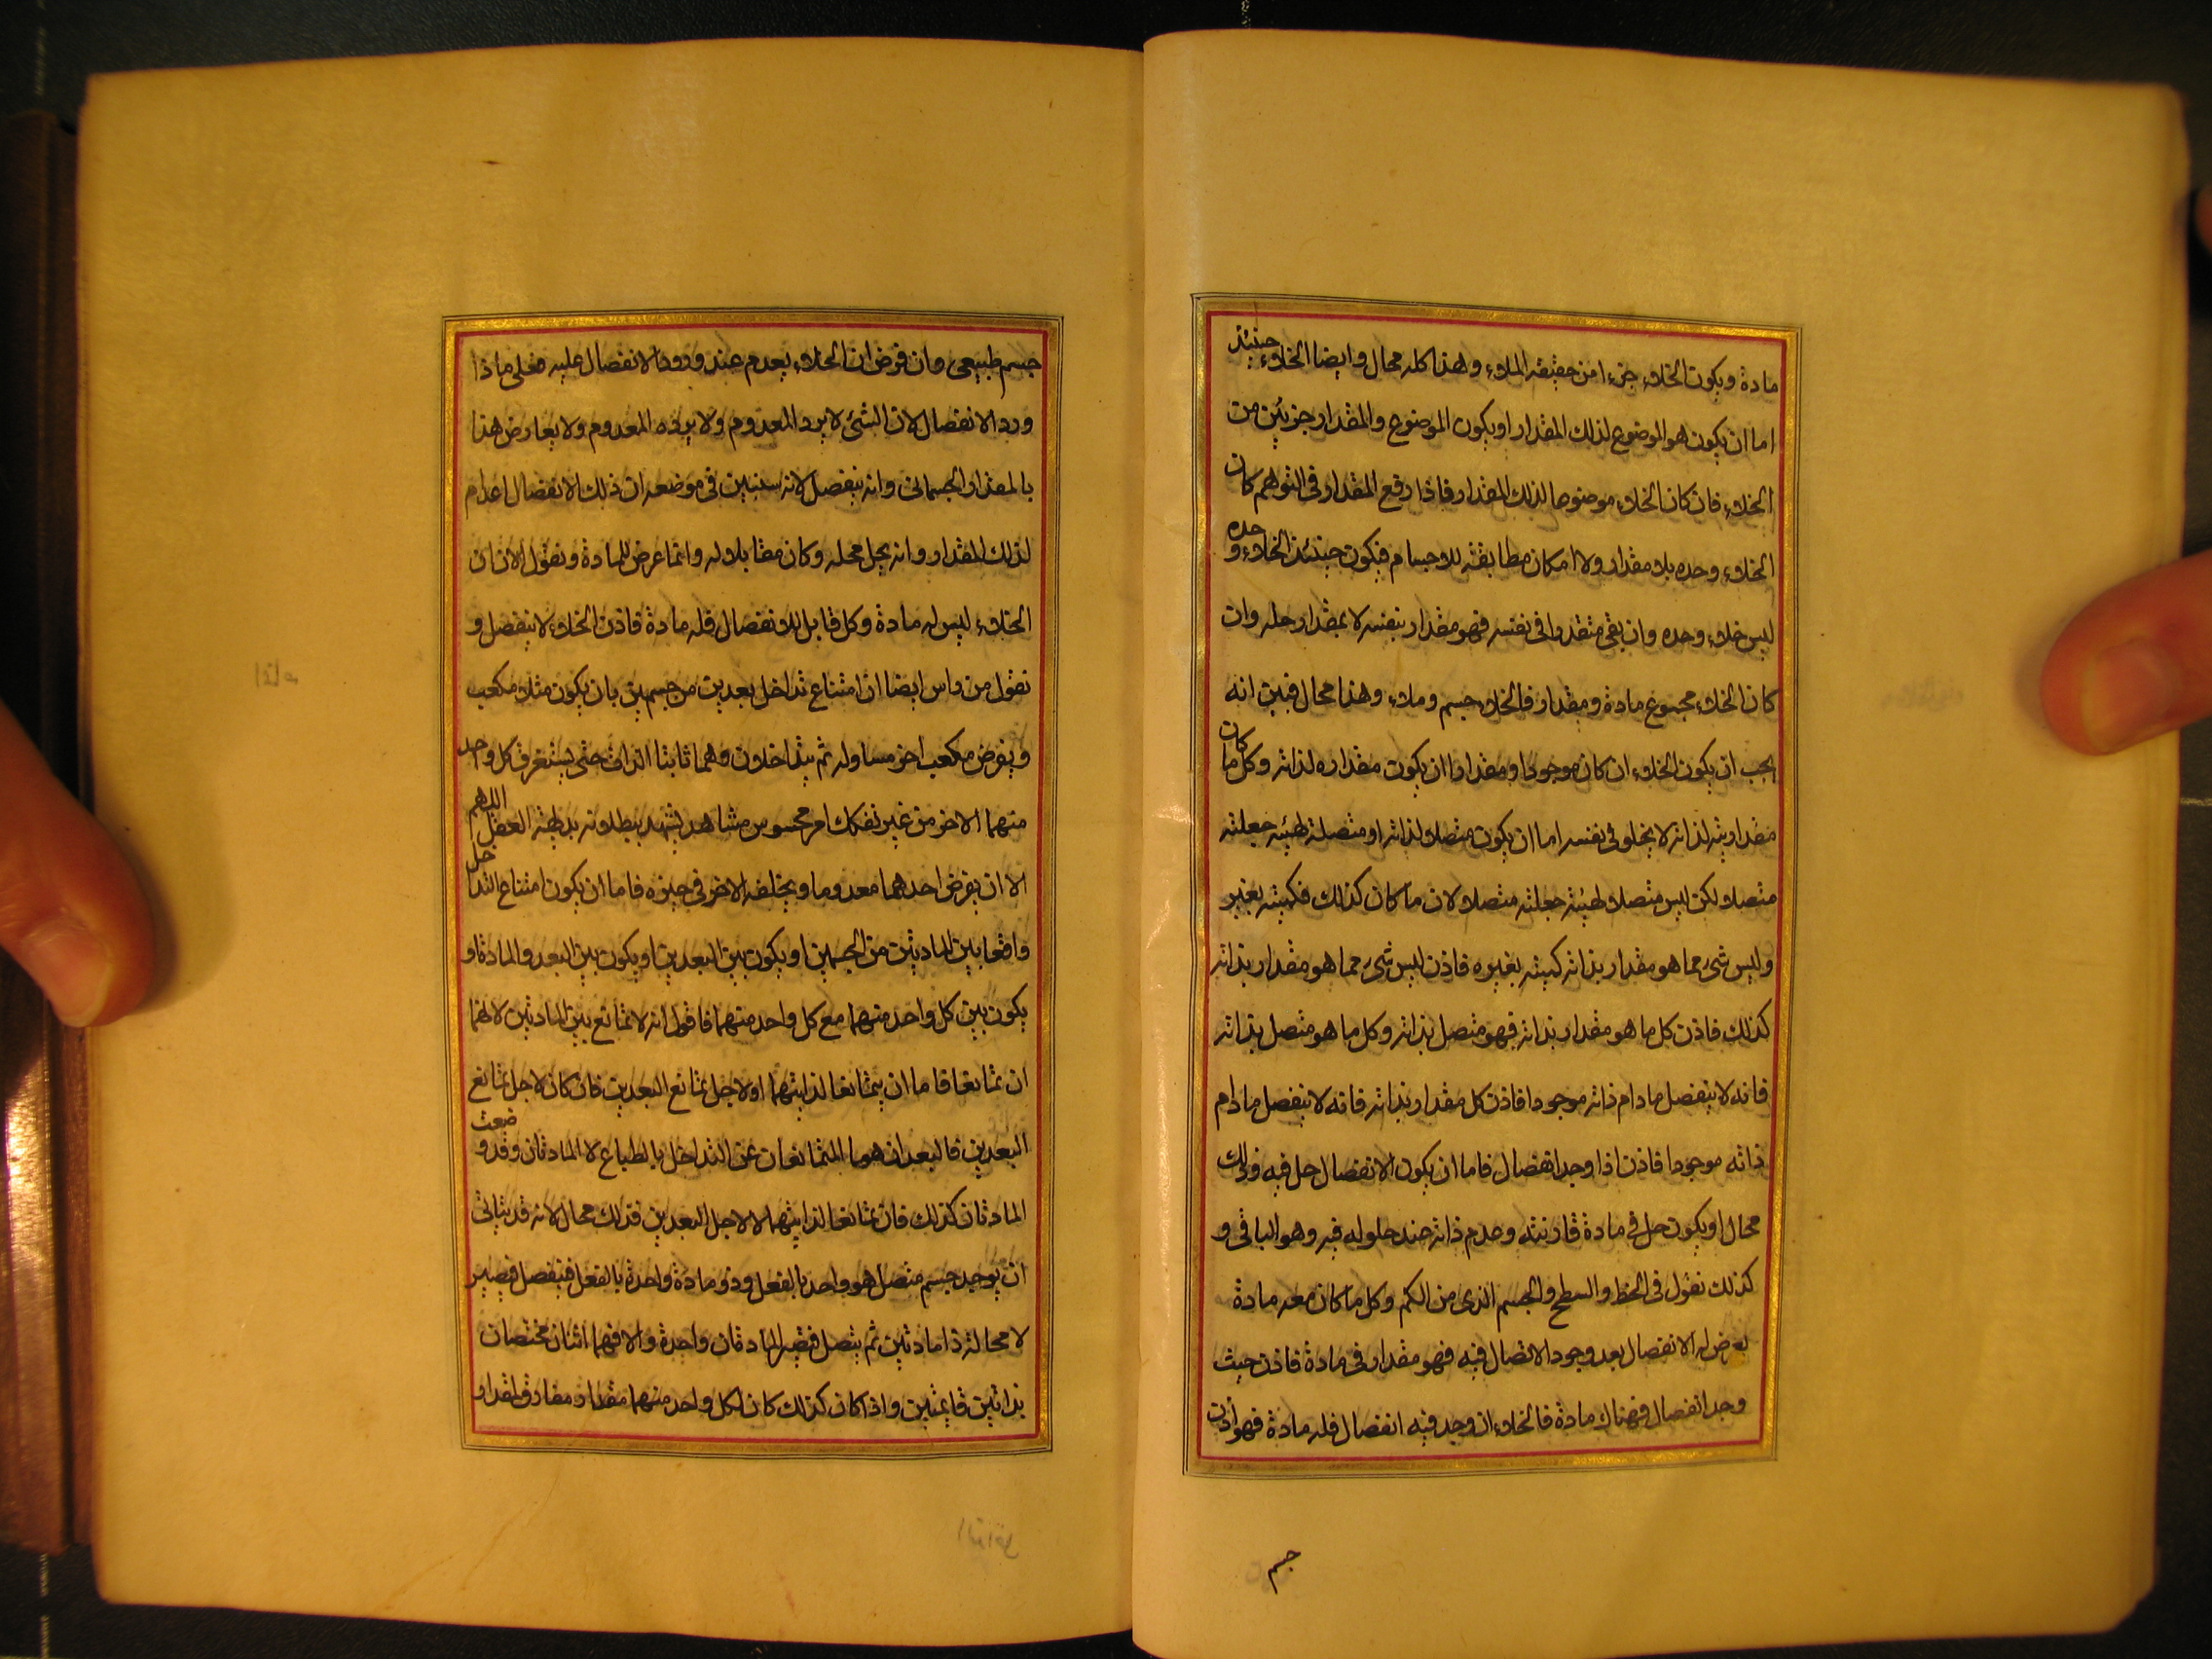 مادة ويكون الخلاء جزءا من حقيقة الملاء وهذا كله محال وايضا الخلاء حينئذ
اما ان يكون هو الموضوع لذلك المقدار او يكون الموضوع والمقدار جزئين من
الخلاء فان كان الخلاء موضوعا لذلك المقدار فاذا رفع المقدار في التوهم كان
الخلاء وحده بلا مقدار ولا امكان مطابقته للاجسام فيكون حينئذ الخلاء وحده
ليس خلاء وحده وان بقى متقدرا في نفسه فهو مقدار بنفسه لا بمقدار حله وان
كان الخلاء مجموع مادة ومقدار فالخلاء جسم وملاء وهذا محال فبين انه
يجب ان يكون الخلاء ان كان موجودا ومقدارا ان يكون مقداره لذاته وكل ما كان
مقداريته لذاته لا يخلو في نفسه اما ان يكون متصلا لذاته او متصلة لهيئه جعلته
متصلا لكن ليس متصلا لهيئة جعلته متصلا لان ما كان كذلك فكميته بغير
وليس شيء مما هو مقدار بذاته كميته بغيره فاذن ليس شيء مما هو مقدار بذاته
كذلك فاذن كل ما هو مقدار بذاته فهو متصل بذاته وكل ما هو متصل بذاته
فانه لا ينفصل مادام ذاته موجودا فاذن كل مقدار بذاته فانه لا ينفصل مادام
ذاته موجودا فاذن اذا وجد انفصال فاما ان يكون الانفصال حل فيه وذلك
محال او يكون حل في مادة قارنته وعدم ذاته عند حلوله فيه وهو الباقي و
كذلك نقول في الخط والسطح والجسم الذي من الكم وكل ما كان معه مادة
يعرض له الانفصال بعد وجود الاتصال فيه فهو مقدار في مادة فاذن حيث
وجد انفصال فهناك مادة فالخلاء ان وجد فيه انفصال فله مادة فهو اذن
جسم
جسم طبيعى وان فرض ان الخلاء يعدم عند ورود الانفصال عليه فعلى ماذا
ورد الانفصال لان الشئ لا يرد المعدوم ولا يرده المعدوم ولا يعارض هذا
بالمقدار الجسمانى وانه ينفصل لانه سنبين في موضعه ان ذلك الانفصال اعدام
لذلك المقدار وانه يحل محله وكان مقابلا له وانما عرض للمادة ونقول الان ان
الخلاء ليس له مادة وكل قابل للانفصال فله مادة فاذن الخلاء لا ينفصل و
نقول من راس ايضا ان امتناع تداخل بعدين من جسمين بان يكون مثلا مكعب
ويفرض مكعب اخر مساو له ثم يتداخلان وهما ثابتا الذات حتى يستغرق كل واحد
منهما الاخر من غير تفكك امر محسوس مشاهد يشهد ببطلانه بديهة العقل اللهم
الا ان يفرض احدهما معدوما ويخلفه الاخر في حيزه فاما ان يكون امتناع التداخل
واقعا بين المادتين من الجسمين او يكون بين البعدين او يكون بين البعد والمادة او
يكون بين كل واحد منهما مع كل واحد منهما فاقول انه لا تمانع بين المادتين لانهما
ان تمانعا فاما ان يتمانعا لذاتيهما او لاجل تمانع البعدين فان كان لاجل تمانع
البعدين فالبعدان هما المتمانعان عن التداخل بالطباع لا المادتان وقد وضعت
المادتان كذلك فان تمانعا لذاتيهما لا لاجل البعدين فذلك محال لانه قد يتاتى
ان يوجد جسم متصل هو واحد بالفعل وذو مادة واحدة بالفعل فينفصل فيصير
لا محالة ذا مادتين ثم يتصل فتصير المادتان واحدة والا فهما اثنان مختصان
بذاتين قايمتين واذا كان كذلك كان لكل واحد منهما مقدار مفارق لمقدار